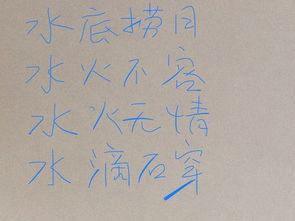 水底捞月
水火不容
水火无情
水滴石穿